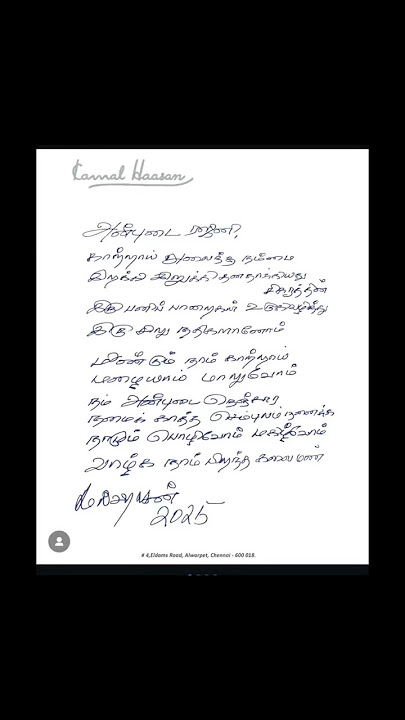 Kamal Haasan
அன்புடை ரஜினி,
காற்றாய் அலைந்த நம்மை
இறக்கி இறுக்கி தனதாக்கியது
சிகரத்தின்
இரு பனிப் பாறைகள் உருகி வழிந்து
இரு சிறு நதிகளானோம்
மீண்டும் நாம் காற்றாய்
மழையாய் மாறுவோம்
நம் அன்புடை நெஞ்சார
நமைக் காத்த செம்புலம் நனைக்க
நாமும் பொழிவோம் மகிழ்வோம்
வாழ்க நாம் பிறந்த கலை மண்
2025
# 4,Eldams Road, Alwarpet, Chennai - 600 018.